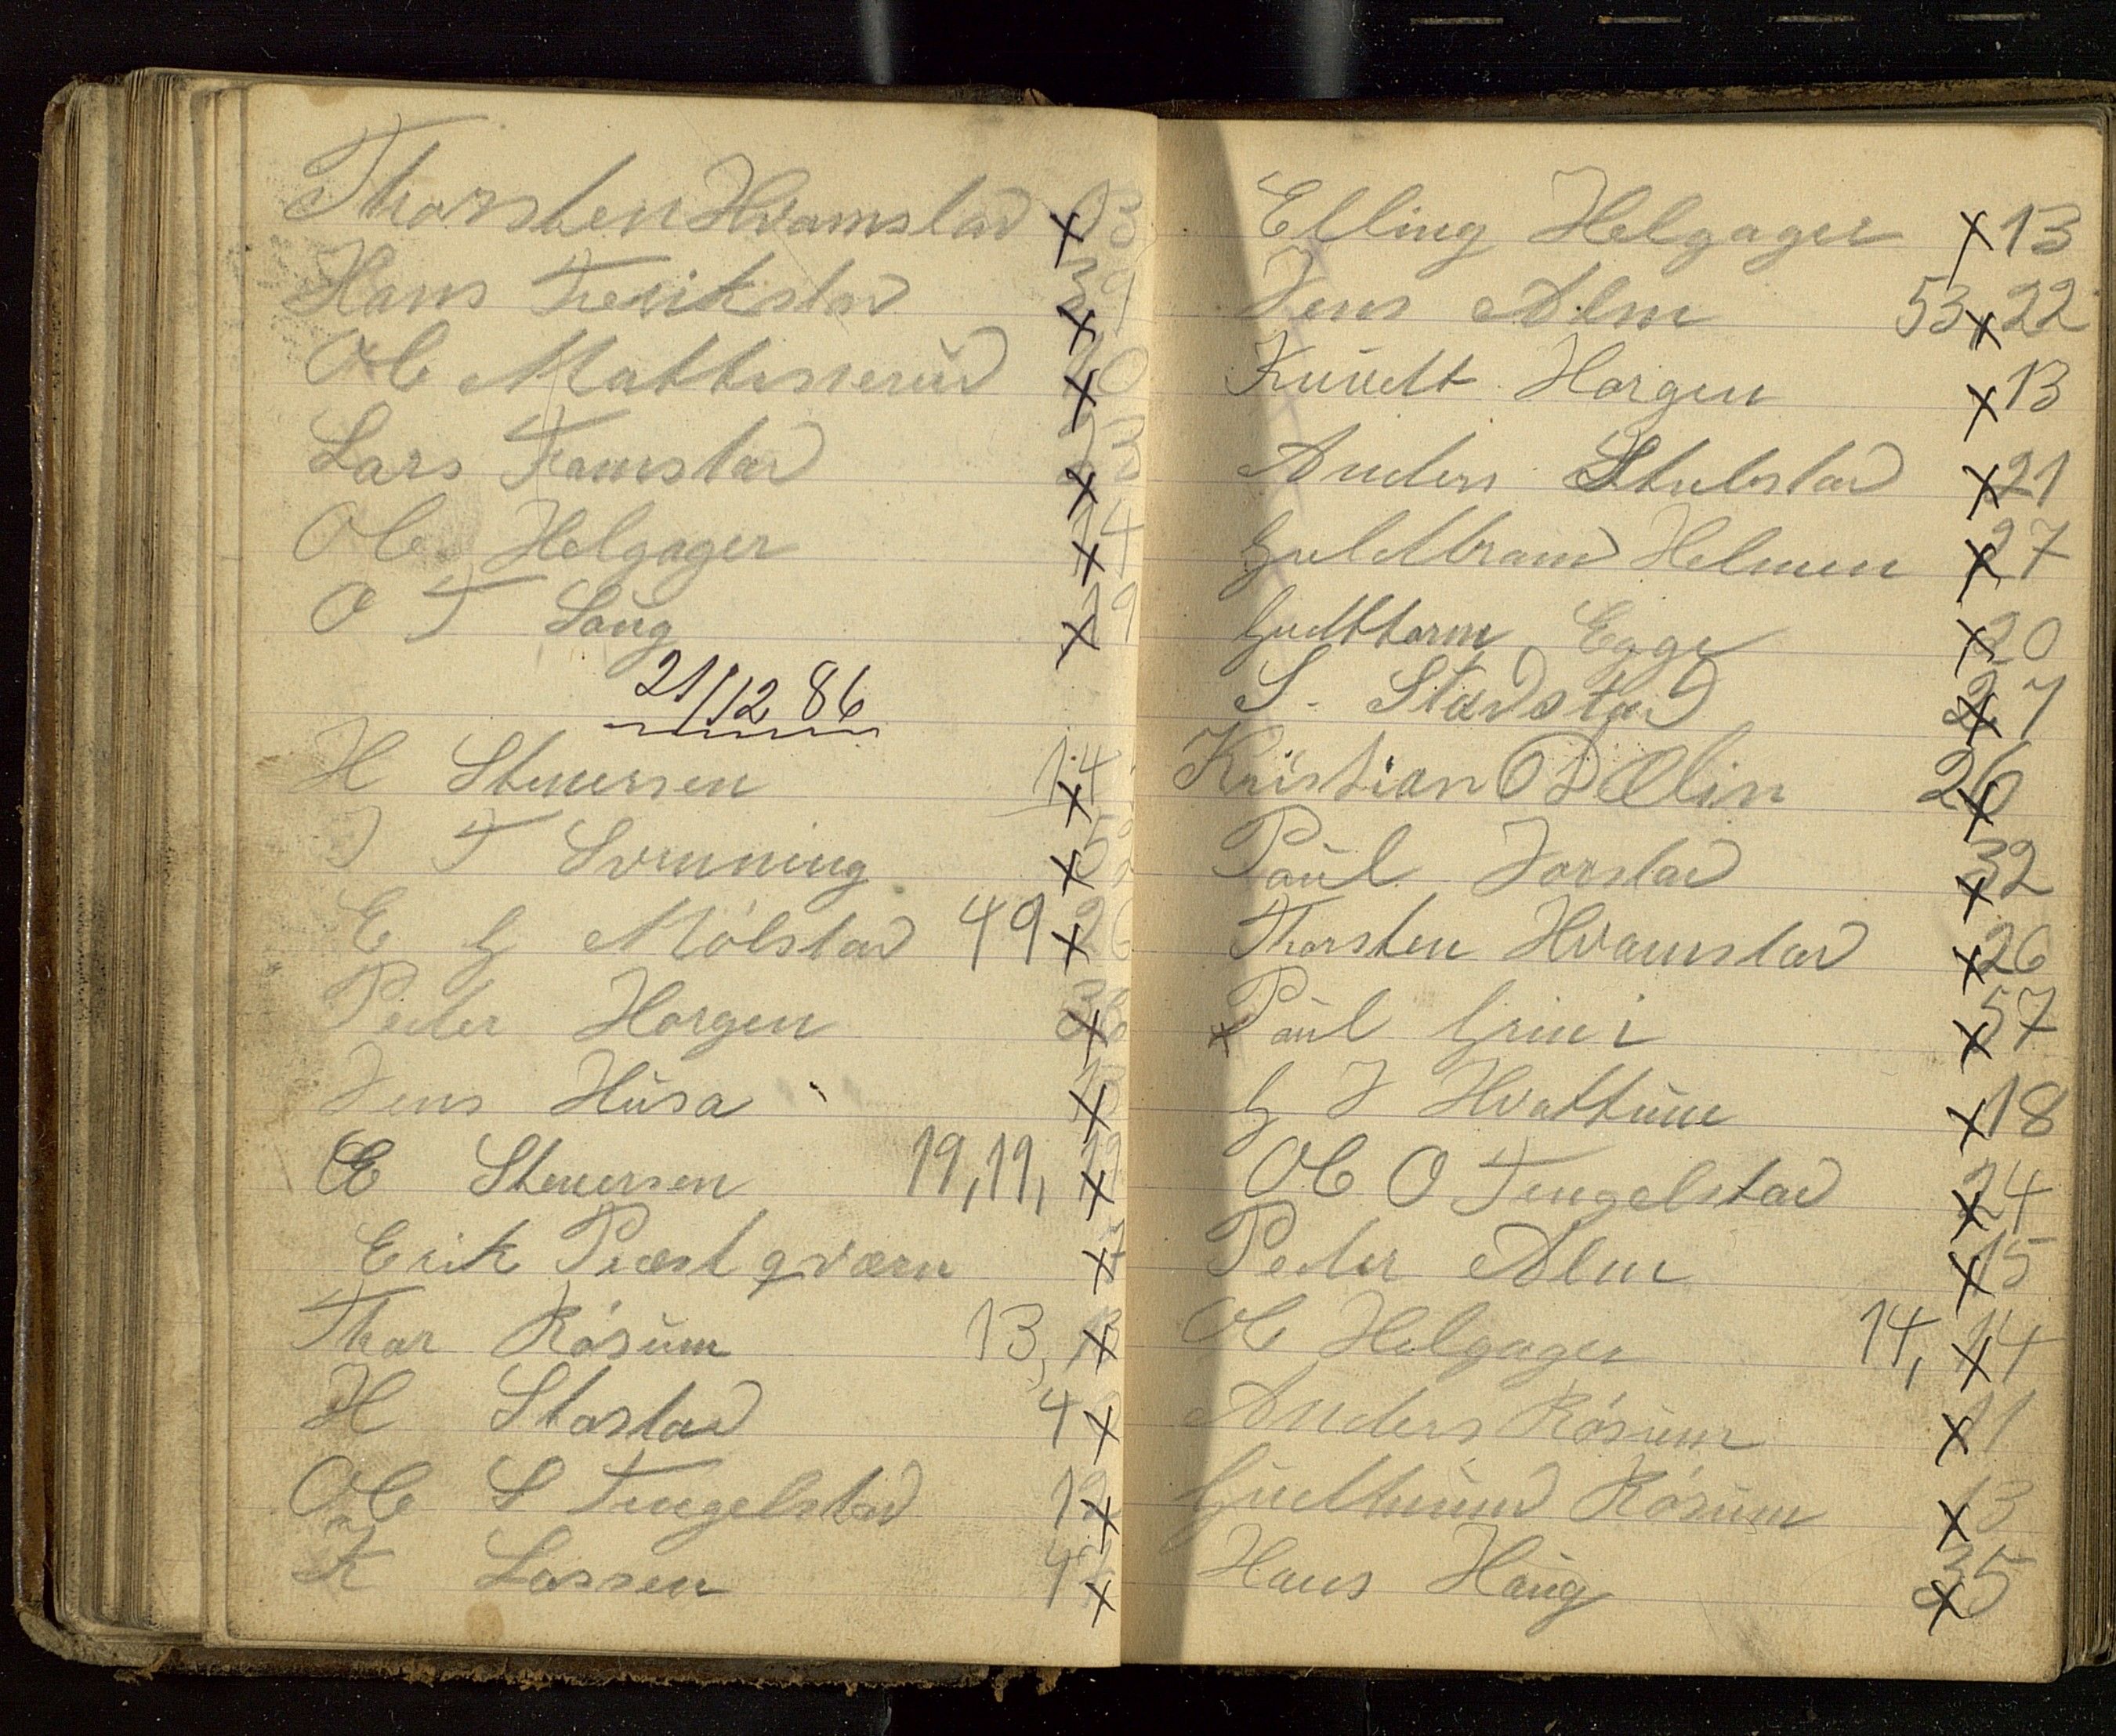 Thorsten Hvamstad x 13
Hans Trevikstad x 39
Ole Mattisnerud x 20
Lars Framstad x 23
Ole Helgager x 14
O T Laug x 19
21/12 86
H Stenersen x 14
J T Svenning x 52
E G Mølstad 49 x 26
Peder Horgen x 36
Jens Husa x 13
E Stenersen 19, 19, x 19
Erik Præstqværn x
Thor Røsum 13, x 13
H Stastad 4 x
Ole S Tingelstad 12 x
K Larsen 4 x
Elling Helgager x 13
Jens Alm 53 x 22
Knudt Horgen x 13
Anders Stubstad x 21
Guldbrand Helmen x 27
Gudttorm Egge x 20
S. Stadstad x 27
Kristian O Dælin x 26
Paul Jorstad x 32
Thorsten Hvamstad x 26
x Paul Grini x 57
G J Hvattum x 18
Ole O Tingelstad x 24
Peder Alm x 15
Ole Helgager 14, x 14
Anders Røsum x 11
Gudmund Røsum x 13
Hans Haug x 35